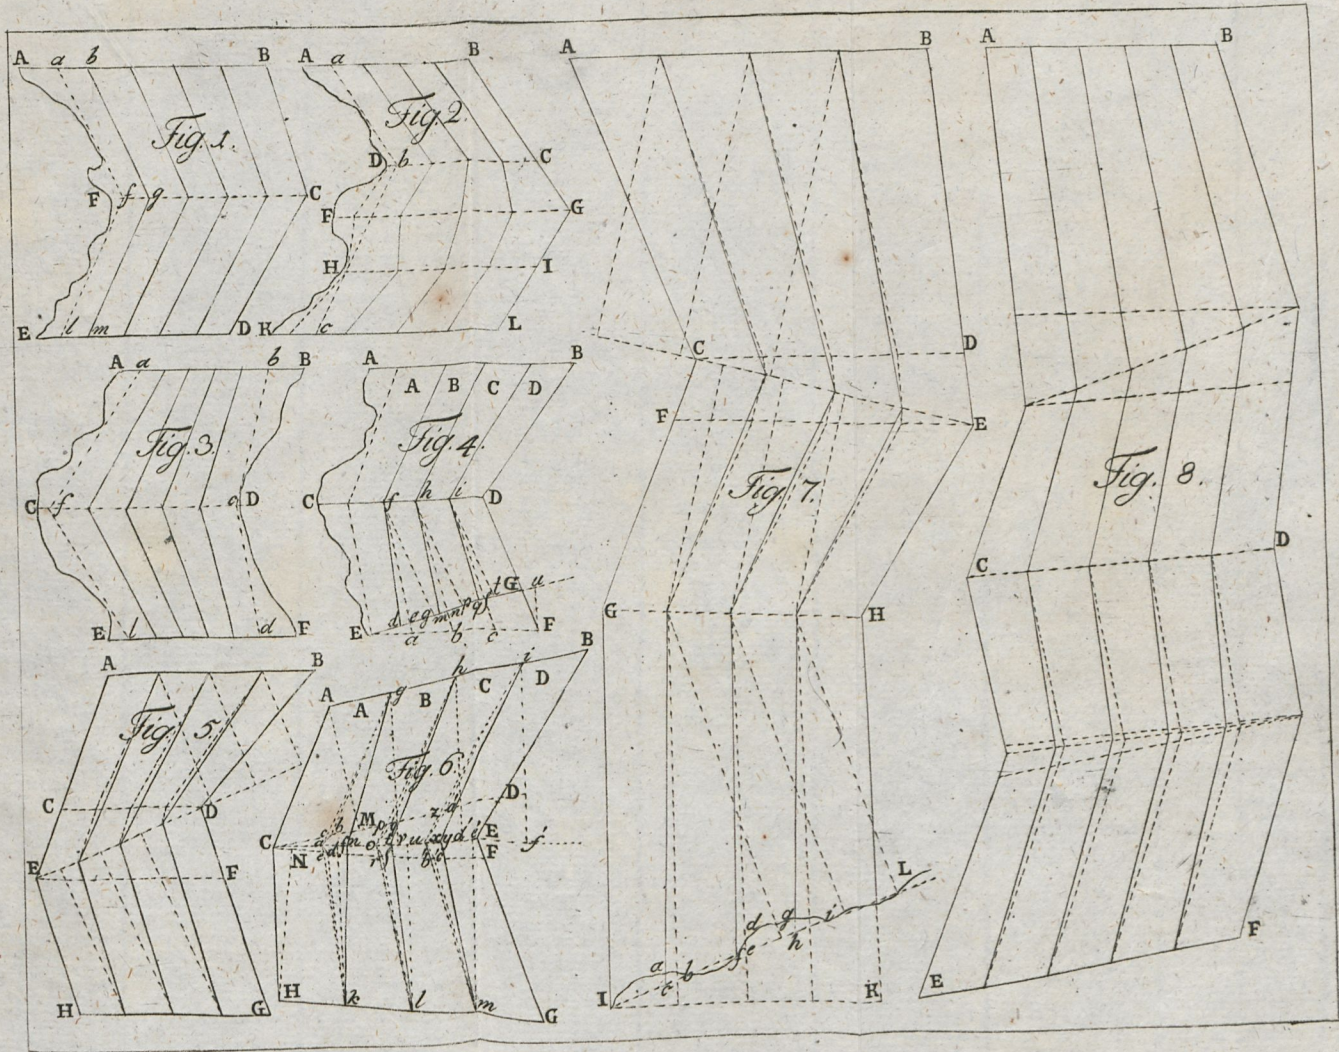 A a b B
Fig. 1.
F f g C
E l m D
A a B
Fig. 2.
D b C
F G
H I
K c L
A a b B
Fig. 3.
C f e D
E l d F
A B
A B C D
Fig. 4.
C f h i D
t G u
d e g m n p q
E a b c F
A B
Fig. 5.
C D
E F
H G
A g h i B
A B C D
Fig. 6
M z D
C E
N F f
H k l m G
A B
C D
F E
Fig. 7.
G H
L
d g i
a f e h
c b
I K
A B
Fig. 8.
C D
E F